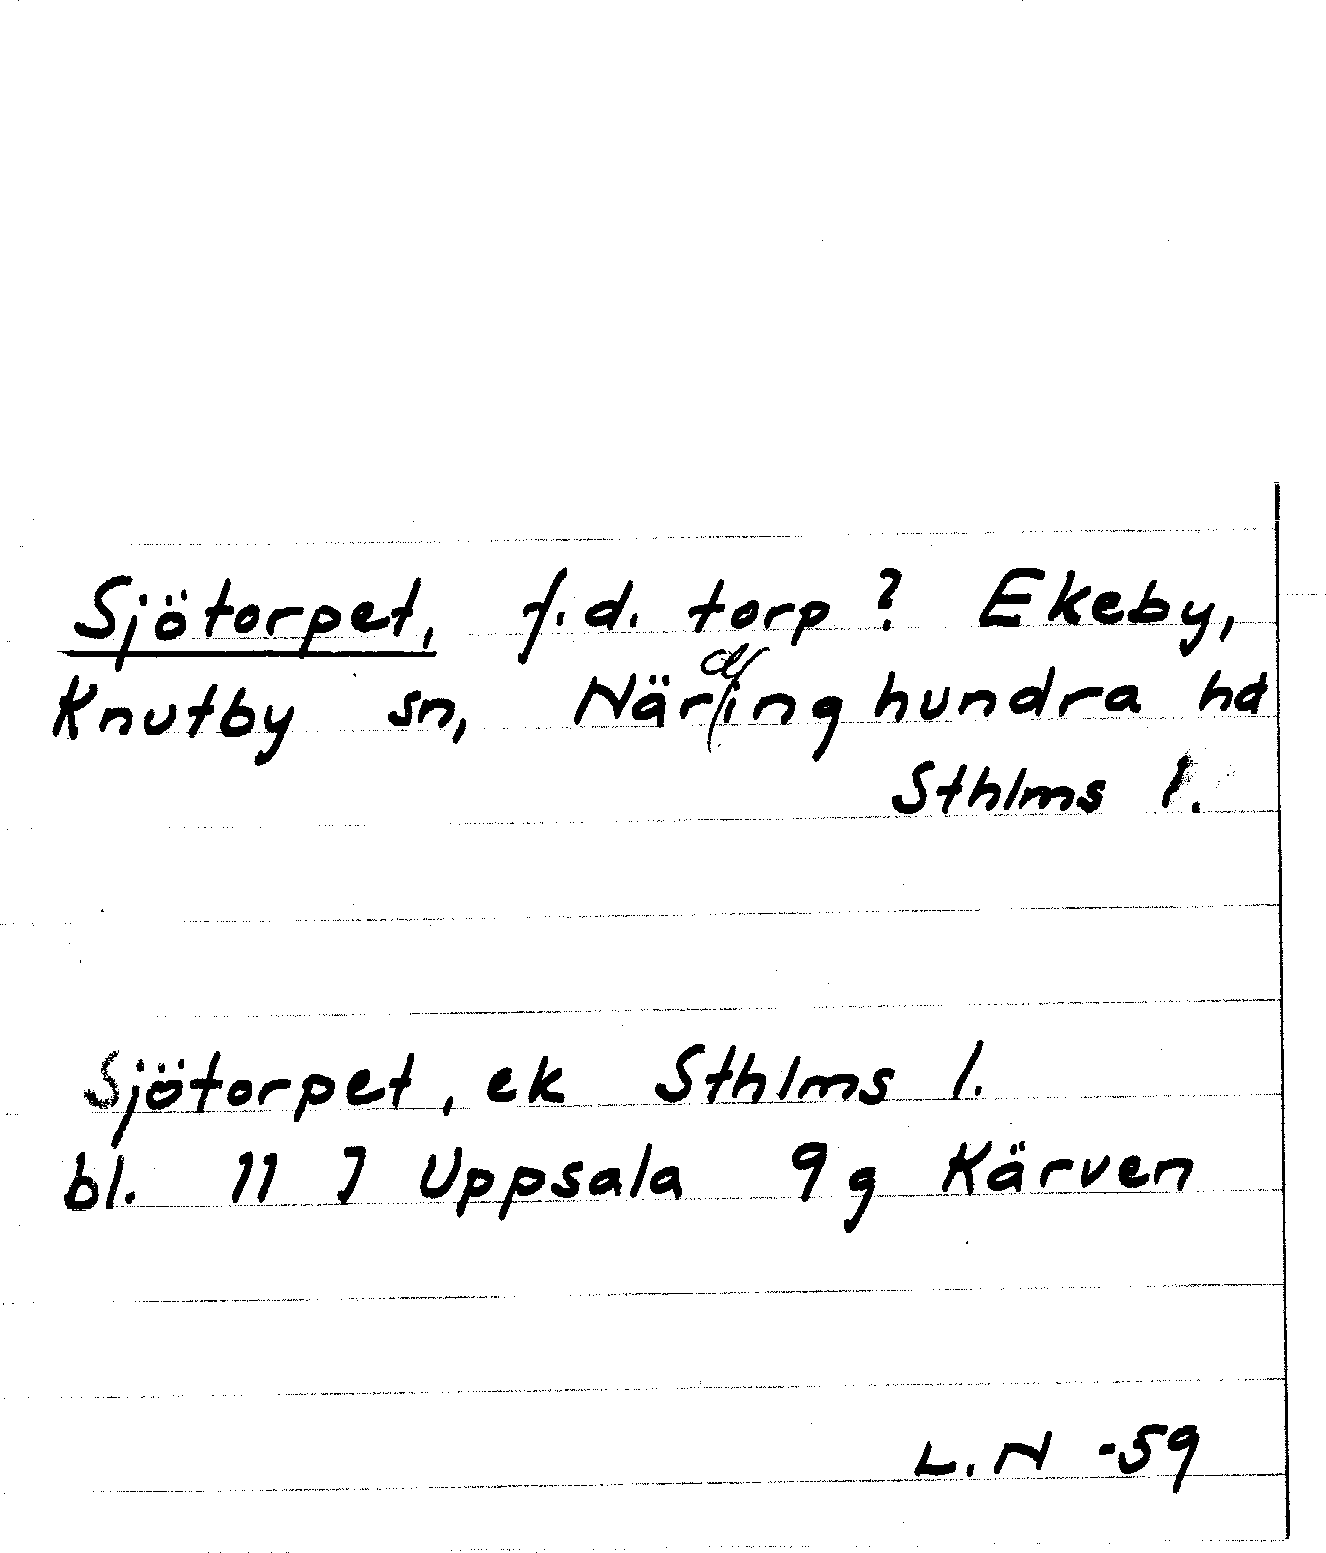 Sjötorpet, f.d. torp? Ekeby,
Knutby sn, Närdinghundra hd
Sthlms l.
Sjötorpet, ek Sthlms l.
bl. 11 J Uppsala 9g Kärven
L.N -59